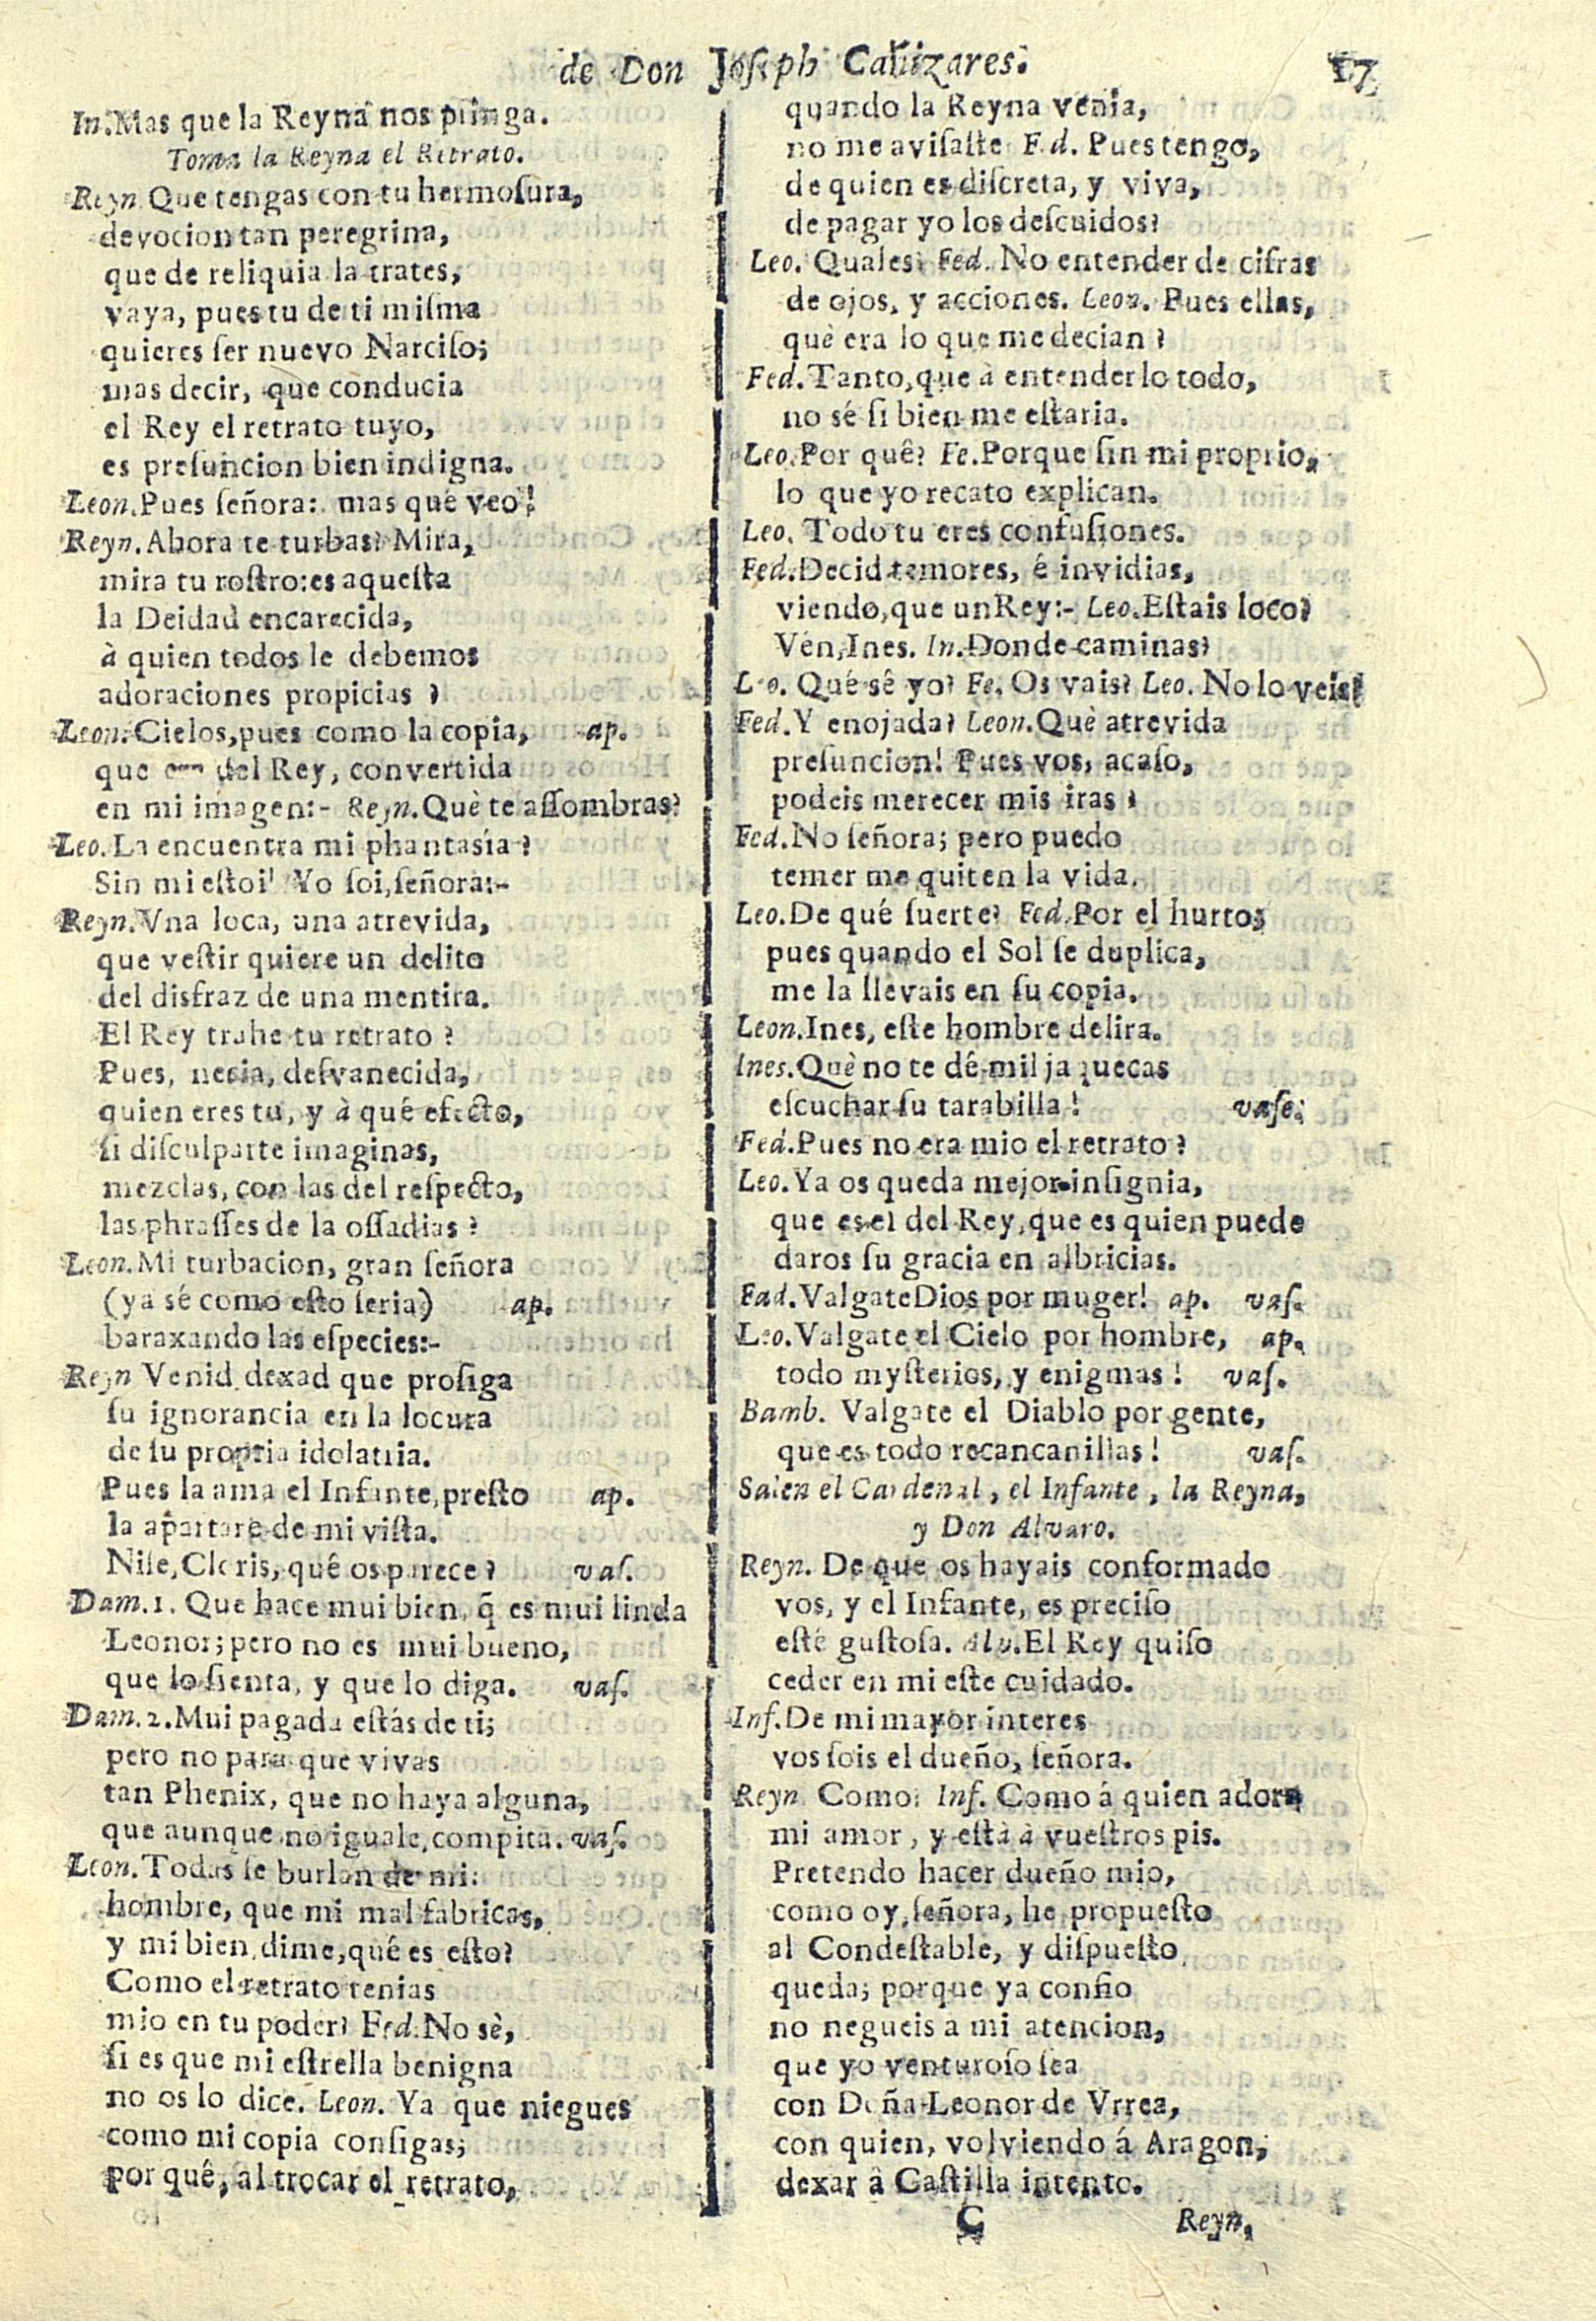 de Don Joseph Cañizares.
17
In. Mas que la Reyna nos pringa.
Toma la Reyna el Retrato.
Reyn. Que tengas con tu hermoſura,
devocion tan peregrina,
que de reliquia la trates,
vaya, pues tu de ti miſma
quieres ſer nuevo Narciſo;
mas decir, que conducia
el Rey el retrato tuyo,
es preſuncion bien indigna.
Leon. Pues ſeñora: mas qué veo!
Reyn. Ahora te turbas? Mira,
mira tu roſtro: es aqueſta
la Deidad encarecida,
à quien todos le debemos
adoraciones propicias?
Leon. Cielos, pues como la copia, ap.
que del Rey, convertida
en mi imagen:- Reyn. Què te aſſombras?
Leo. La encuentra mi phantasía?
Sin mi eſtoi! Yo ſoi, ſeñora:-
Reyn. Vna loca, una atrevida,
que veſtir quiere un delito
del disfraz de una mentira.
El Rey trahe tu retrato?
Pues, necia, deſvanecida,
quien eres tu, y à qué efecto,
ſi diſculparte imaginas,
mezclas, con las del reſpecto,
las phraſſes de la oſſadias?
Leon. Mi turbacion, gran ſeñora
(ya sé como eſto ſeria) ap.
baraxando las eſpecies:-
Reyn Venid, dexad que proſiga
ſu ignorancia en la locura
de ſu propria idolatria.
Pues la ama el Infante, preſto ap.
la apartarè de mi viſta.
Niſe, Cloris, qué os parece? vaſ.
Dam. 1. Que hace mui bien, q̃ es mui linda
Leonor; pero no es mui bueno,
que lo ſienta, y que lo diga. vaſ.
Dam. 2. Mui pagada eſtás de ti;
pero no para que vivas
tan Phenix, que no haya alguna,
que aunque no iguale, compita. vaſ.
Leon. Todas ſe burlan de mi:
hombre, que mi mal fabricas,
y mi bien, dime, qué es eſto?
Como el retrato tenias
mio en tu poder? Fed. No sè,
ſi es que mi eſtrella benigna
no os lo dice. Leon. Ya que niegues
como mi copia conſigas;
por qué, al trocar el retrato,
quando la Reyna venia,
no me aviſaſte? Fed. Pues tengo,
de quien es diſcreta, y viva,
de pagar yo los deſcuidos?
Leo. Quales? Fed. No entender de cifras
de ojos, y acciones. Leon. Pues ellas,
què era lo que me decian?
Fed. Tanto, que à entenderlo todo,
no sé ſi bien me eſtaria.
Leo. Por quê? Fe. Porque ſin mi proprio,
lo que yo recato explican.
Leo. Todo tu eres confuſiones.
Fed. Decid temores, é invidias,
viendo, que un Rey:- Leo. Eſtais loco?
Vén, Ines. In. Donde caminas?
Leo. Qué sê yo? Fe. Os vais? Leo. No lo veis?
Fed. Y enojada? Leon. Què atrevida
preſuncion! Pues vos, acaſo,
podeis merecer mis iras?
Fed. No ſeñora; pero puedo
temer me quiten la vida.
Leo. De qué ſuerte? Fed. Por el hurto;
pues quando el Sol ſe duplica,
me la llevais en ſu copia.
Leon. Ines, eſte hombre delira.
Ines. Què no te dé mil jaquecas
eſcuchar ſu tarabilla! vaſe.
Fed. Pues no era mio el retrato?
Leo. Ya os queda mejor inſignia,
que es el del Rey, que es quien puede
daros ſu gracia en albricias.
Fad. Valgate Dios por muger! ap. vaſ.
Leo. Valgate el Cielo por hombre, ap.
todo myſterios, y enigmas! vaſ.
Bamb. Valgate el Diablo por gente,
que es todo recancanillas! vaſ.
Salen el Cardenal, el Infante, la Reyna,
y Don Alvaro.
Reyn. De que os hayais conformado
vos, y el Infante, es preciſo
eſté guſtoſa. Alv. El Rey quiſo
ceder en mi eſte cuidado.
Inf. De mi mayor interes
vos ſois el dueño, ſeñora.
Reyn. Como? Inf. Como á quien adora
mi amor, y eſtà à vueſtros pis.
Pretendo hacer dueño mio,
como oy, ſeñora, he propueſto
al Condeſtable, y diſpueſto
queda; porque ya confio
no negueis a mi atencion,
que yo venturoſo ſea
con Doña Leonor de Vrrea,
con quien, volviendo á Aragon,
dexar â Caſtilla intento.
C
Reyn.